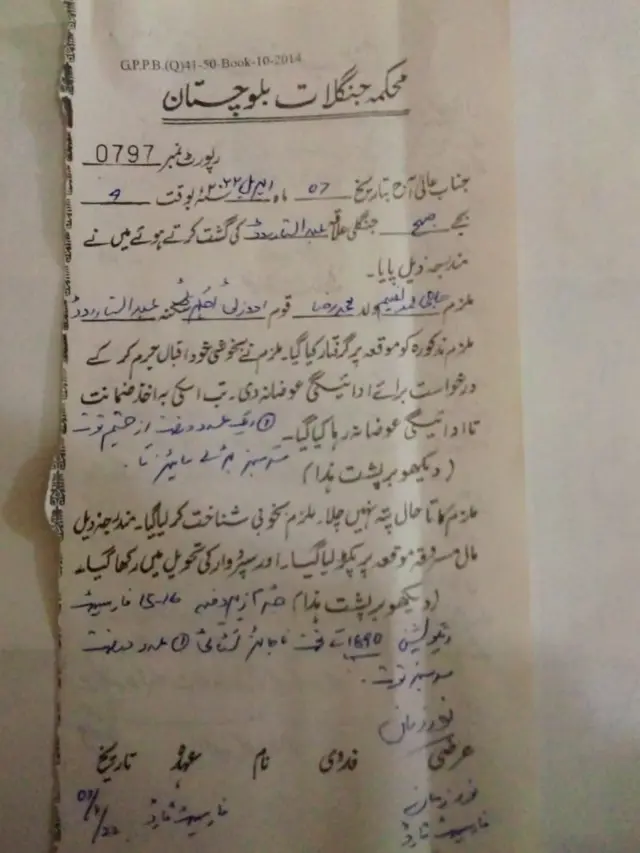 G.P.P.B.(Q)41-50-Book-10-2014
محکمہ جنگلات بلوچستان
رپورٹ نمبر 0797
جناب عالی آج بتاریخ 07 ماہ اپریل ۲۰۲۲ سنہ بوقت 9
بجے صبح جنگلی علاقہ عبدالستار روڈ کی گشت کرتے ہوئے میں نے
مندرجہ ذیل پایا۔
ملزم حاجی محمد نعیم ولد محمد رضا قوم سکنہ عبدالستار روڈ
ملزم مذکورہ کو موقعہ پر گرفتار کیا گیا۔ ملزم نے بخوشی خود اقبال جرم کر کے
درخواست برائے ادائیگی عوضانہ دی۔ تب اسکی بہ اخذ ضمانت
تا ادائیگی عوضانہ رہا کیا گیا۔ ① ایک عدد درخت از قسم توت
(دیکھو بر پشت ہذا) سرسبز
ملزم کا تا حال پتہ نہیں چلا۔ ملزم بخوبی شناخت کر لیا گیا۔ مندرجہ ذیل
مال مسرقہ موقعہ پر پکڑ لیا گیا۔ اور سپردار کی تحویل میں رکھا گیا۔
(دیکھو بر پشت ہذا) دفعہ 15-16 فارسٹ
ریگولیشن 1890 کے تحت ناجائز کٹائی ① عدد درخت
سرسبز توت۔
نور زمان
عرضی فدوی نام عہدہ تاریخ
نور زمان
فارسٹ گارڈ
فارسٹ گارڈ